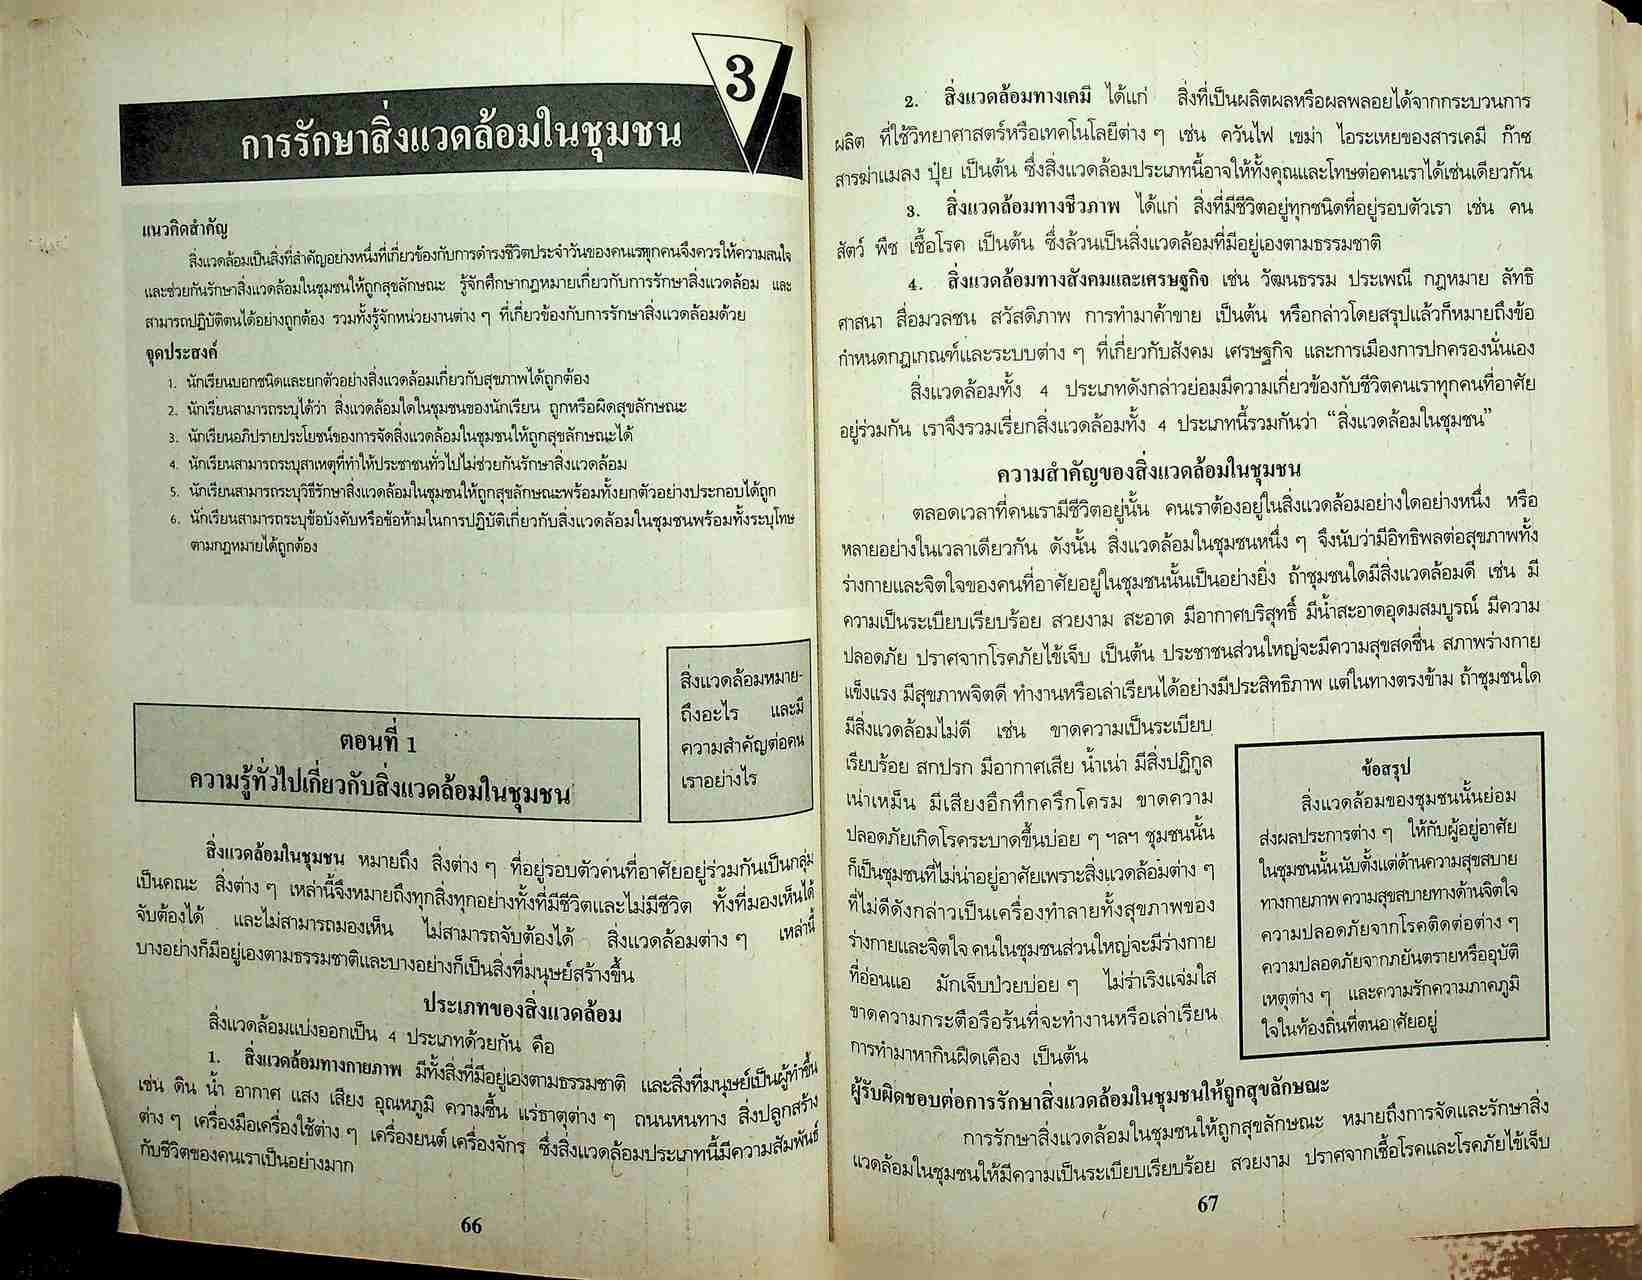 3
การรักษาสิ่งแวดล้อมในชุมชน
แนวคิดสำคัญ
สิ่งแวดล้อมเป็นสิ่งที่สำคัญอย่างหนึ่งที่เกี่ยวข้องกับการดำรงชีวิตประจำวันของคนเราทุกคนจึงควรให้ความสนใจ
และช่วยกันรักษาสิ่งแวดล้อมในชุมชนให้ถูกสุขลักษณะ รู้จักศึกษากฎหมายเกี่ยวกับการรักษาสิ่งแวดล้อม และ
สามารถปฏิบัติตนได้อย่างถูกต้อง รวมทั้งรู้จักหน่วยงานต่าง ๆ ที่เกี่ยวข้องกับการรักษาสิ่งแวดล้อมด้วย
จุดประสงค์
1. นักเรียนบอกชนิดและยกตัวอย่างสิ่งแวดล้อมเกี่ยวกับสุขภาพได้ถูกต้อง
2. นักเรียนสามารถระบุได้ว่า สิ่งแวดล้อมใดในชุมชนของนักเรียน ถูกหรือผิดสุขลักษณะ
3. นักเรียนอภิปรายประโยชน์ของการจัดสิ่งแวดล้อมในชุมชนให้ถูกสุขลักษณะได้
4. นักเรียนสามารถระบุสาเหตุที่ทำให้ประชาชนทั่วไปไม่ช่วยกันรักษาสิ่งแวดล้อม
5. นักเรียนสามารถระบุวิธีรักษาสิ่งแวดล้อมในชุมชนให้ถูกสุขลักษณะพร้อมทั้งยกตัวอย่างประกอบได้ถูก
6. นักเรียนสามารถระบุข้อบังคับหรือข้อห้ามในการปฏิบัติเกี่ยวกับสิ่งแวดล้อมในชุมชนพร้อมทั้งระบุโทษ
ตามกฎหมายได้ถูกต้อง
สิ่งแวดล้อมหมาย-
ถึงอะไร และมี
ความสำคัญต่อคน
เราอย่างไร
ตอนที่ 1
ความรู้ทั่วไปเกี่ยวกับสิ่งแวดล้อมในชุมชน
สิ่งแวดล้อมในชุมชน หมายถึง สิ่งต่าง ๆ ที่อยู่รอบตัวคนที่อาศัยอยู่ร่วมกันเป็นกลุ่ม
เป็นคณะ สิ่งต่าง ๆ เหล่านี้จึงหมายถึงทุกสิ่งทุกอย่างทั้งที่มีชีวิตและไม่มีชีวิต ทั้งที่มองเห็นได้
จับต้องได้ และไม่สามารถมองเห็น ไม่สามารถจับต้องได้ สิ่งแวดล้อมต่าง ๆ เหล่านี้
บางอย่างก็มีอยู่เองตามธรรมชาติและบางอย่างก็เป็นสิ่งที่มนุษย์สร้างขึ้น
ประเภทของสิ่งแวดล้อม
สิ่งแวดล้อมแบ่งออกเป็น 4 ประเภทด้วยกัน คือ
1. สิ่งแวดล้อมทางกายภาพ มีทั้งสิ่งที่มีอยู่เองตามธรรมชาติ และสิ่งที่มนุษย์เป็นผู้ทำขึ้น
เช่น ดิน น้ำ อากาศ แสง เสียง อุณหภูมิ ความชื้น แร่ธาตุต่าง ๆ ถนนหนทาง สิ่งปลูกสร้าง
ต่าง ๆ เครื่องมือเครื่องใช้ต่าง ๆ เครื่องยนต์ เครื่องจักร ซึ่งสิ่งแวดล้อมประเภทนี้มีความสัมพันธ์
กับชีวิตของคนเราเป็นอย่างมาก
66
2. สิ่งแวดล้อมทางเคมี ได้แก่ สิ่งที่เป็นผลิตผลหรือผลพลอยได้จากกระบวนการ
ผลิต ที่ใช้วิทยาศาสตร์หรือเทคโนโลยีต่าง ๆ เช่น ควันไฟ เขม่า ไอระเหยของสารเคมี ก๊าซ
สารฆ่าแมลง ปุ๋ย เป็นต้น ซึ่งสิ่งแวดล้อมประเภทนี้อาจให้ทั้งคุณและโทษต่อคนเราได้เช่นเดียวกัน
3. สิ่งแวดล้อมทางชีวภาพ ได้แก่ สิ่งที่มีชีวิตอยู่ทุกชนิดที่อยู่รอบตัวเรา เช่น คน
สัตว์ พืช เชื้อโรค เป็นต้น ซึ่งล้วนเป็นสิ่งแวดล้อมที่มีอยู่เองตามธรรมชาติ
4. สิ่งแวดล้อมทางสังคมและเศรษฐกิจ เช่น วัฒนธรรม ประเพณี กฎหมาย ลัทธิ
ศาสนา สื่อมวลชน สวัสดิภาพ การทำมาค้าขาย เป็นต้น หรือกล่าวโดยสรุปแล้วก็หมายถึงข้อ
กำหนดกฎเกณฑ์และระบบต่าง ๆ ที่เกี่ยวกับสังคม เศรษฐกิจ และการเมืองการปกครองนั่นเอง
สิ่งแวดล้อมทั้ง 4 ประเภทดังกล่าวย่อมมีความเกี่ยวข้องกับชีวิตคนเราทุกคนที่อาศัย
อยู่ร่วมกัน เราจึงรวมเรียกสิ่งแวดล้อมทั้ง 4 ประเภทนี้รวมกันว่า “สิ่งแวดล้อมในชุมชน”
ความสำคัญของสิ่งแวดล้อมในชุมชน
ตลอดเวลาที่คนเรามีชีวิตอยู่นั้น คนเราต้องอยู่ในสิ่งแวดล้อมอย่างใดอย่างหนึ่ง หรือ
หลายอย่างในเวลาเดียวกัน ดังนั้น สิ่งแวดล้อมในชุมชนหนึ่ง ๆ จึงนับว่ามีอิทธิพลต่อสุขภาพทั้ง
ร่างกายและจิตใจของคนที่อาศัยอยู่ในชุมชนนั้นเป็นอย่างยิ่ง ถ้าชุมชนใดมีสิ่งแวดล้อมดี เช่น มี
ความเป็นระเบียบเรียบร้อย สวยงาม สะอาด มีอากาศบริสุทธิ์ มีน้ำสะอาดอุดมสมบูรณ์ มีความ
ปลอดภัย ปราศจากโรคภัยไข้เจ็บ เป็นต้น ประชาชนส่วนใหญ่จะมีความสุขสดชื่น สภาพร่างกาย
แข็งแรง มีสุขภาพจิตดี ทำงานหรือเล่าเรียนได้อย่างมีประสิทธิภาพ แต่ในทางตรงข้าม ถ้าชุมชนใด
มีสิ่งแวดล้อมไม่ดี เช่น ขาดความเป็นระเบียบ
เรียบร้อย สกปรก มีอากาศเสีย น้ำเน่า มีสิ่งปฏิกูล
เน่าเหม็น มีเสียงอึกทึกครึกโครม ขาดความ
ปลอดภัยเกิดโรคระบาดขึ้นบ่อย ๆ ฯลฯ ชุมชนนั้น
ก็เป็นชุมชนที่ไม่น่าอยู่อาศัยเพราะสิ่งแวดล้อมต่าง ๆ
ที่ไม่ดีดังกล่าวเป็นเครื่องทำลายทั้งสุขภาพของ
ร่างกายและจิตใจ คนในชุมชนส่วนใหญ่จะมีร่างกาย
ที่อ่อนแอ มักเจ็บป่วยบ่อย ๆ ไม่ร่าเริงแจ่มใส
ขาดความกระตือรือร้นที่จะทำงานหรือเล่าเรียน
การทำมาหากินฝืดเคือง เป็นต้น
ข้อสรุป
สิ่งแวดล้อมของชุมชนนั้นย่อม
ส่งผลประการต่าง ๆ ให้กับผู้อยู่อาศัย
ในชุมชนนั้นนับตั้งแต่ด้านความสุขสบาย
ทางกายภาพ ความสุขสบายทางด้านจิตใจ
ความปลอดภัยจากโรคติดต่อต่าง ๆ
ความปลอดภัยจากภยันตรายหรืออุบัติ
เหตุต่าง ๆ และความรักความภาคภูมิ
ใจในท้องถิ่นที่ตนอาศัยอยู่
ผู้รับผิดชอบต่อการรักษาสิ่งแวดล้อมในชุมชนให้ถูกสุขลักษณะ
การรักษาสิ่งแวดล้อมในชุมชนให้ถูกสุขลักษณะ หมายถึงการจัดและรักษาสิ่ง
แวดล้อมในชุมชนให้มีความเป็นระเบียบเรียบร้อย สวยงาม ปราศจากเชื้อโรคและโรคภัยไข้เจ็บ
67